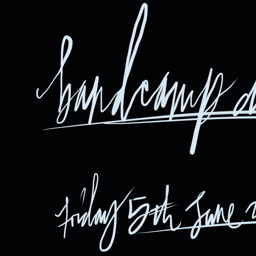 bandcamp d
Friday 5th June 2